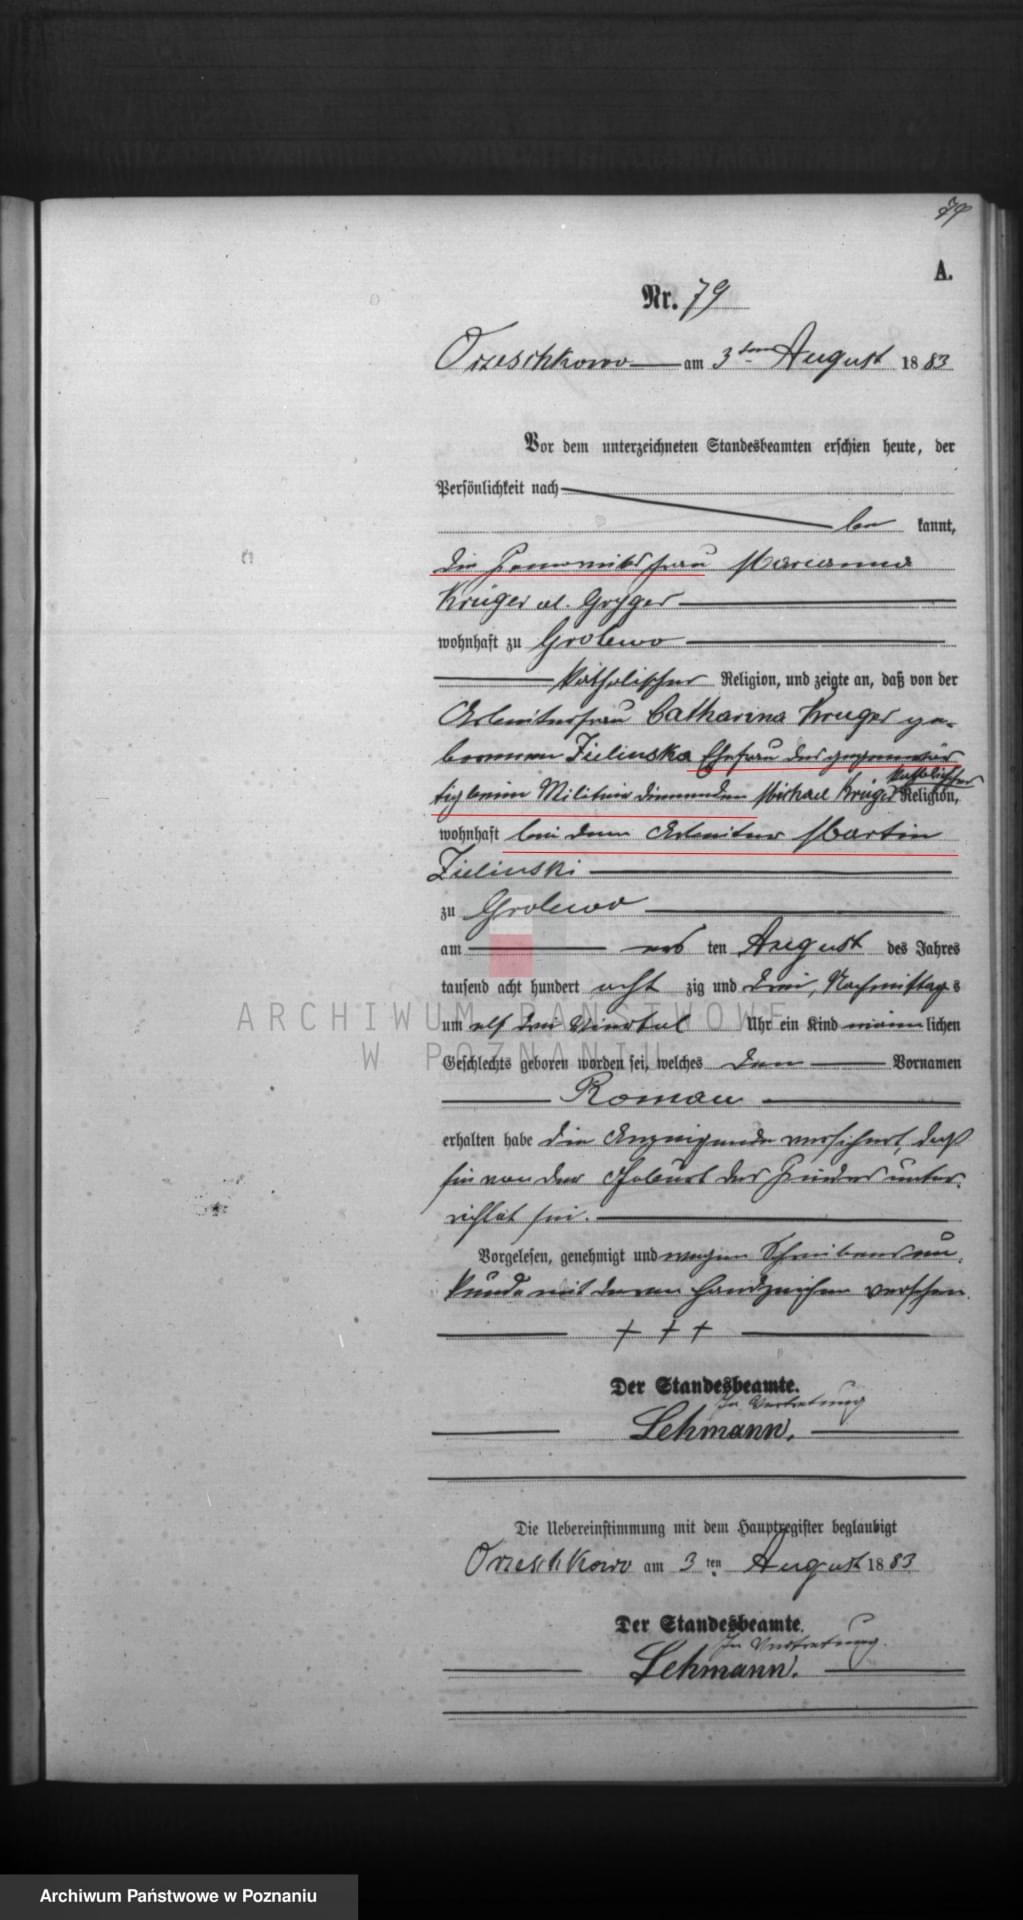 79
A.
Nr. 79
Orzeschkowo am 3ten August 1883
Vor dem unterzeichneten Standesbeamten erschien heute, der
Persönlichkeit nach
be kannt,
die Frau Marianna
Krüger al. Gryger
wohnhaft zu Grolewo
katholischer Religion, und zeigte an, daß von der
Arbeiterfrau Catharina Krüger ge-
borenen Zielinska Ehefrau des gegenwär
tig beim Militair dienenden Michael Krüger katholischer Religion,
wohnhaft bei dem Arbeiter Martin
Zielinski
zu Grolewo
am ersten August des Jahres
tausend acht hundert acht zig und drei, Nachmittags
um elf drei Viertel Uhr ein Kind männlichen
Geschlechts geboren worden sei, welches den Vornamen
Roman
erhalten habe die Anzeigende versichert, daß
sie von der Geburt des Kindes unter-
richtet sei.
Vorgelesen, genehmigt und wegen Schreibensun
kunde mit deren Handzeichen versehen.
+ + +
Der Standesbeamte.
In Vertretung
Lehmann.
Die Uebereinstimmung mit dem Hauptregister beglaubigt
Orzeschkowo am 3ten August 1883
Der Standesbeamte.
In Vertretung
Lehmann.
ARCHIWUM PAŃSTWOWE
W POZNANIU
Archiwum Państwowe w Poznaniu